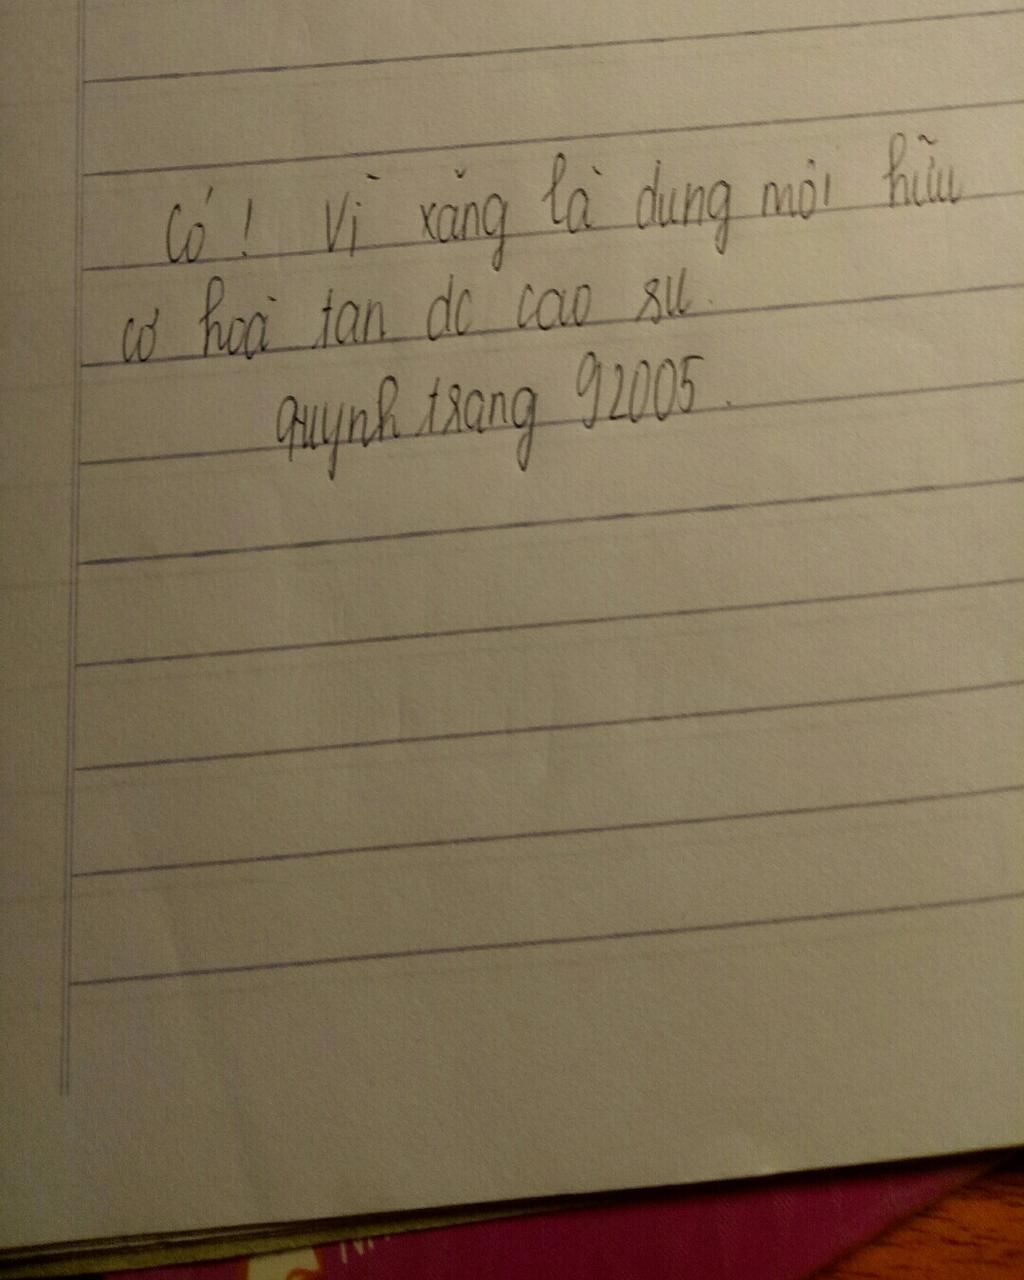 Có! Vì xăng là dung môi hữu
cơ hoà tan dc cao su.
quynh trang 92005.